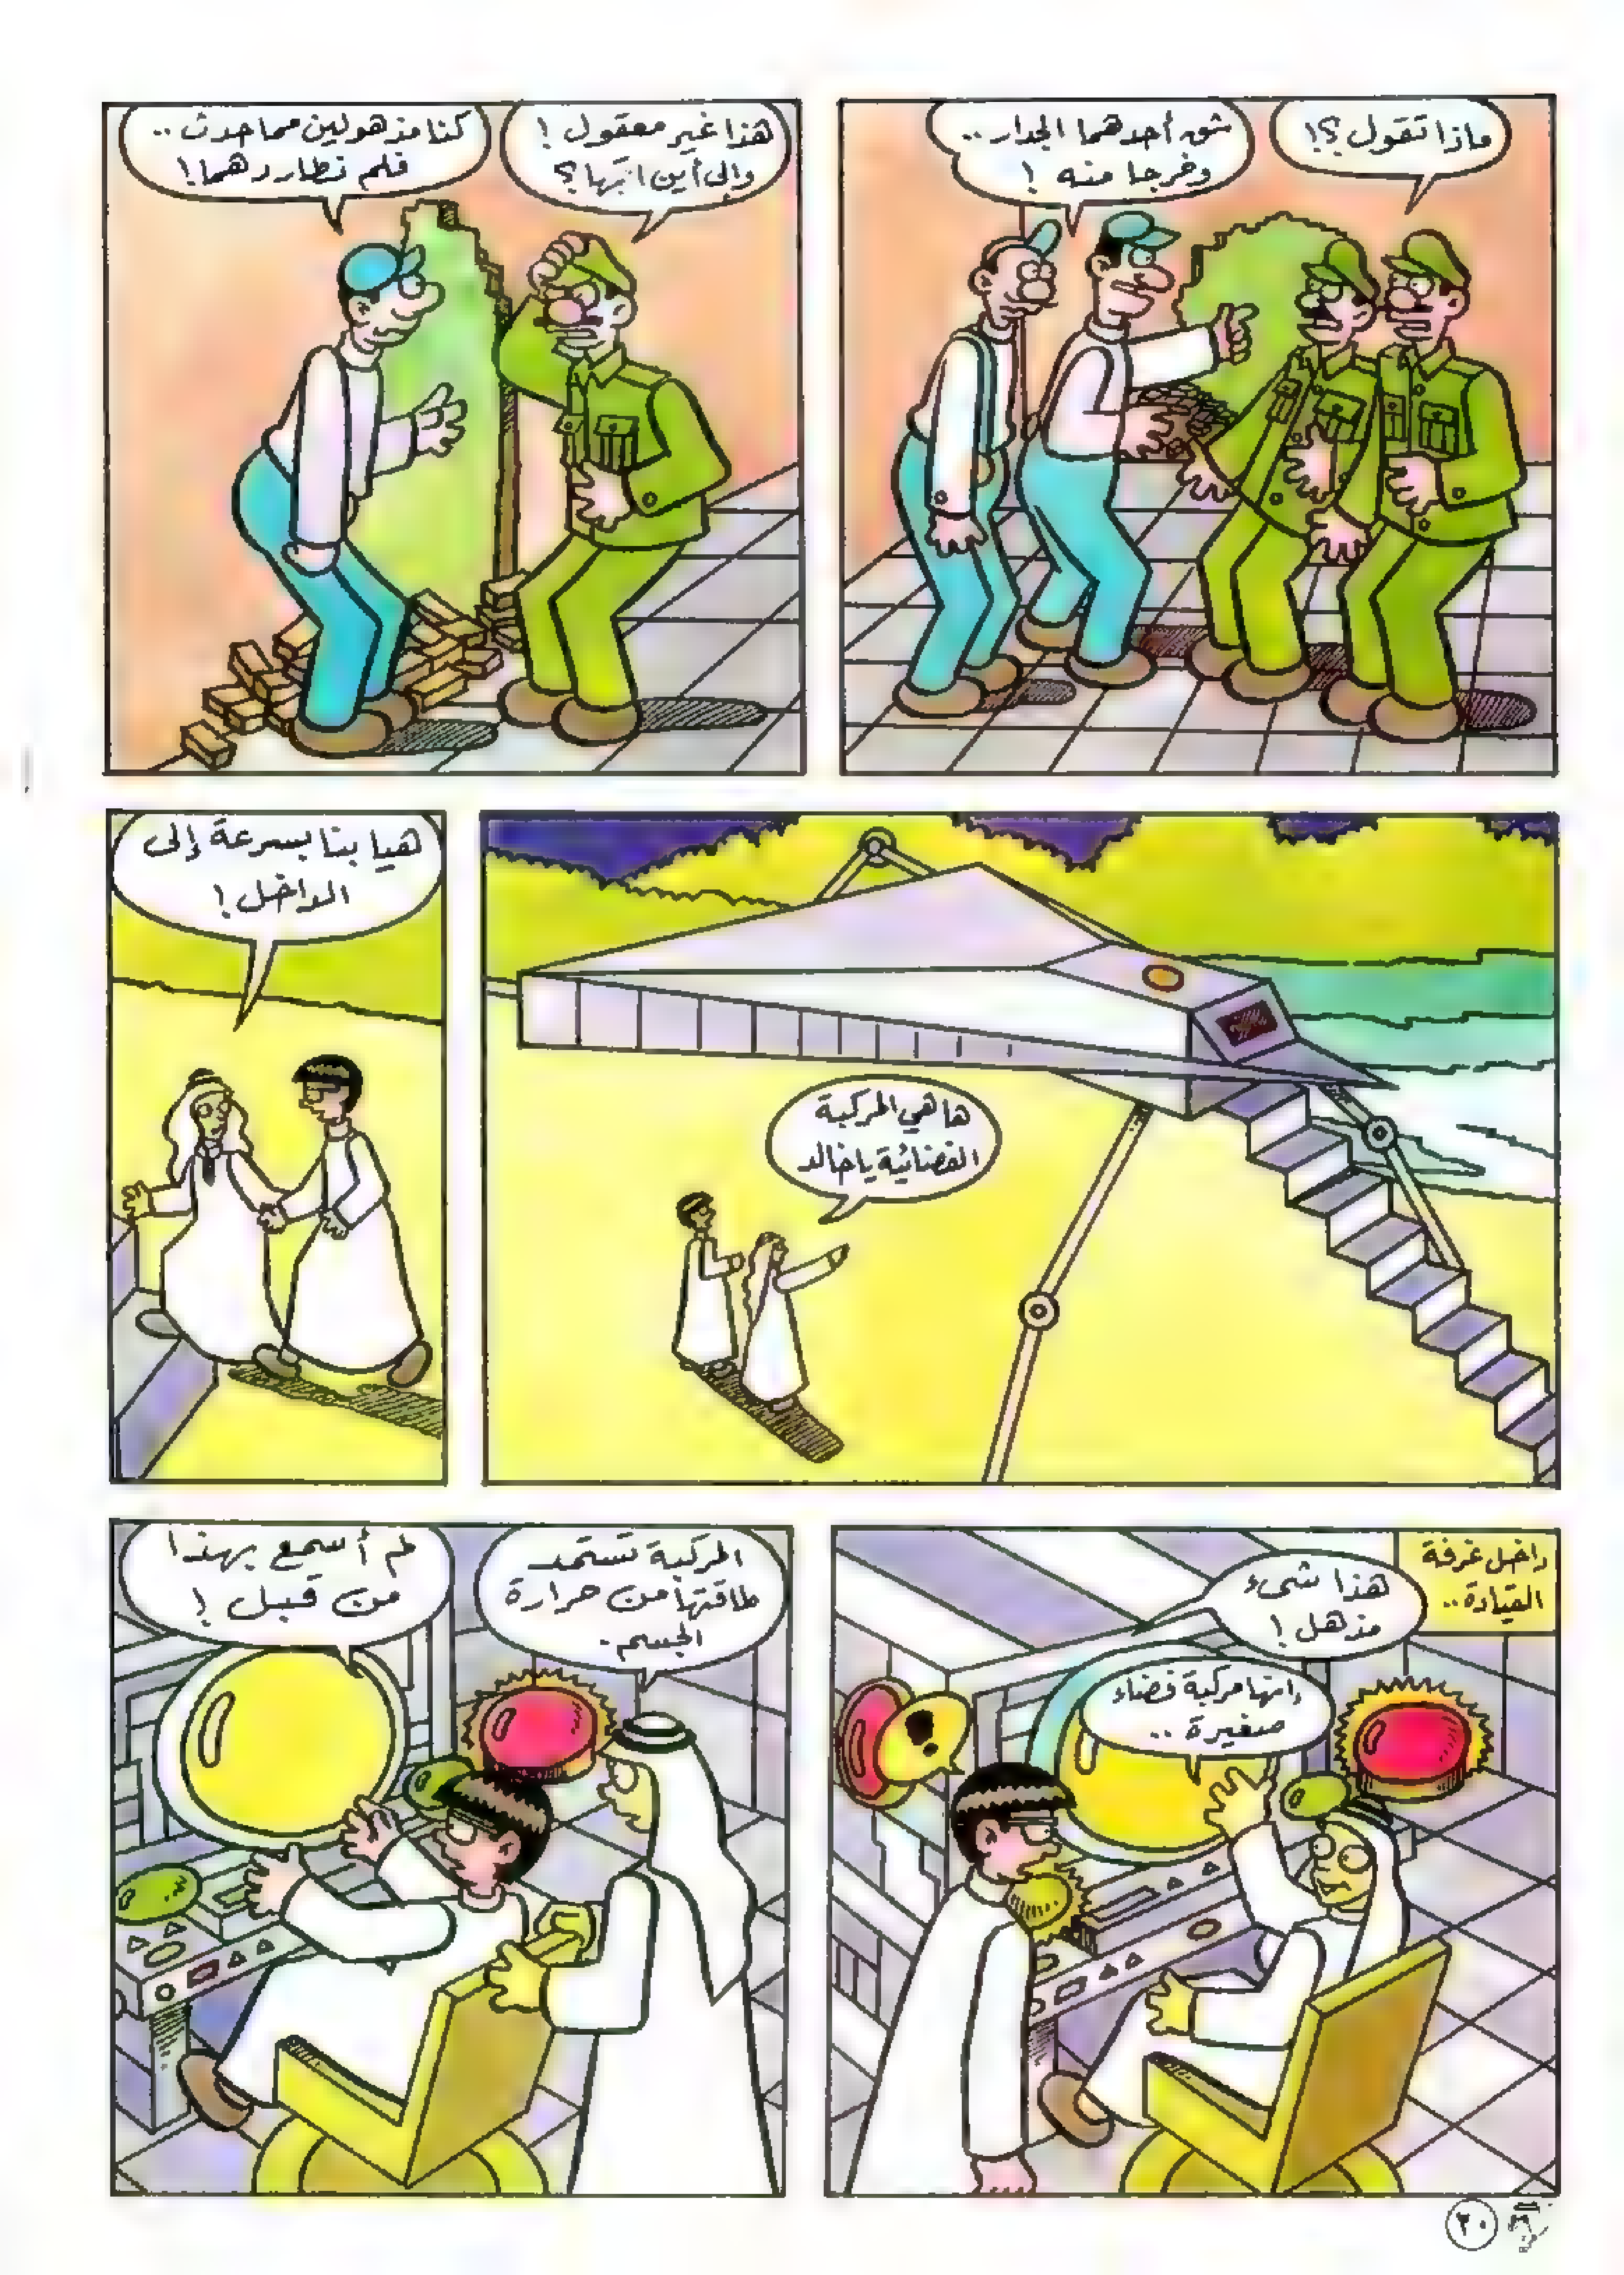 ماذا تقول؟!
شق أحدهما الجدار..
وخرجا منه!
هذا غير معقول!
وإلى أين اتجها؟
كنا مذهولين مما حدث..
فلم نطاردهما!
ها هي المركبة
الفضائية يا خالد
هيا بنا بسرعة إلى
الداخل!
داخل غرفة
القيادة..
هذا شيء
مذهل!
إنها مركبة فضاء
صغيرة..
المركبة تستمد
طاقتها من حرارة
الجسم.
لم أسمع بهذا
من قبل!
٢٠